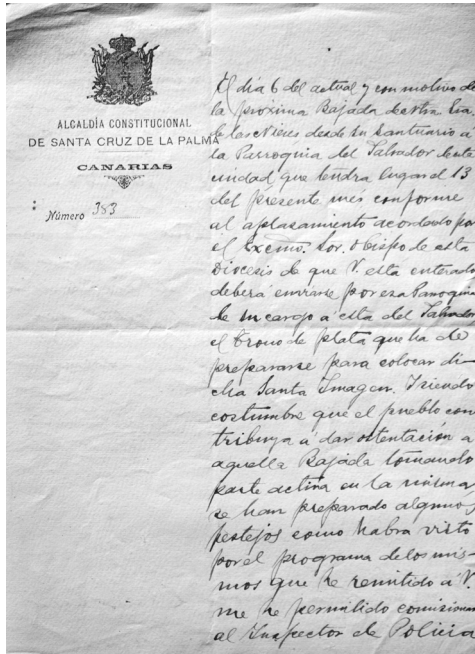 ALCALDÍA CONSTITUCIONAL
DE SANTA CRUZ DE LA PALMA
CANARIAS
Número 383
El día 6 del actual y con motivo de
la próxima Bajada de Ntra. Sra.
de las Nieves desde su Santuario a
la Parroquia del Salvador de esta
ciudad, que tendra lugar el 13
del presente mes conforme
al aplasamiento acordado por
el Excmo. Sor. Obispo de esta
Diocesis de que V. esta enterado
deberá enviarse por esa Parroquia
de su cargo a esta del Salvador
el Trono de plata que ha de
prepararse para colocar di-
cha Santa Imagen. Y siendo
costumbre que el pueblo con-
tribuya a dar ostentación a
aquella Bajada tomando
parte activa en la misma,
se han preparado algunos
festejos como habra visto
por el programa de los mis-
mos que he remitido a V.
me he permitido comisionar
al Inspector de Policia